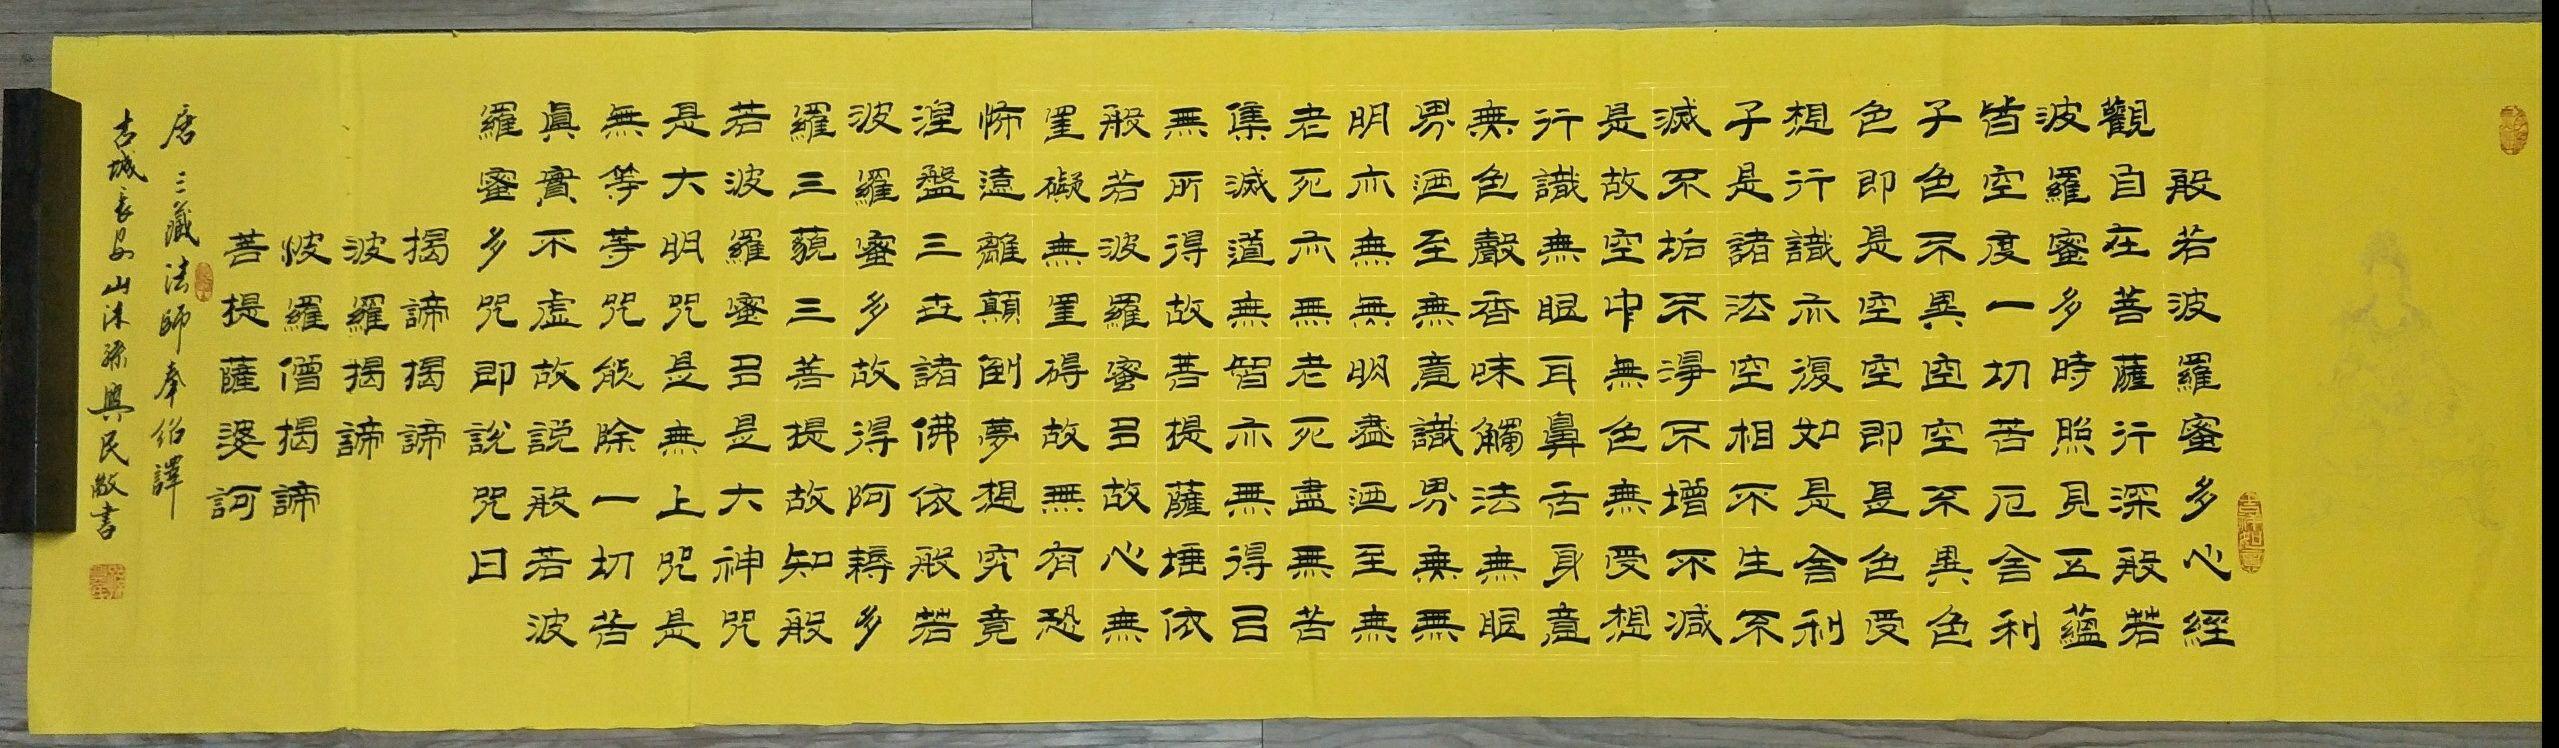 般若波羅蜜多心經
吉祥如意
觀自在菩薩行深般若
波羅蜜多時照見五蘊
皆空度一切苦厄舍利
子色不異空空不異色
色即是空空即是色受
想行識亦復如是舍利
子是諸法空相不生不
滅不垢不淨不增不減
是故空中無色無受想
行識無眼耳鼻舌身意
無色聲香味觸法無眼
界迺至無意識界無無
明亦無無明盡迺至無
老死亦無老死盡無苦
集滅道無智亦無得㠯
無所得故菩提薩埵依
般若波羅蜜㠯故心無
罣礙無罣碍故無有恐
怖遠離顛倒夢想究竟
涅盤三世諸佛依般若
波羅蜜多故得阿耨多
羅三藐三菩提故知般
若波羅蜜㠯是大神咒
是大明咒是無上咒是
無等等咒能除一切苦
真實不虛故說般若波
羅蜜多咒即說咒曰
揭諦揭諦
波羅揭諦
波羅僧揭諦
菩提薩婆訶
唐三藏法師奉紹譯
古城長安山沐孫興民敬書